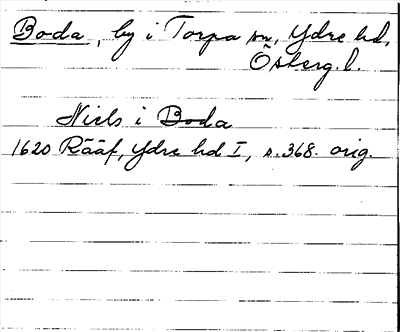 Boda, by i Torpa sn, Ydre hd,
Österg. l.
Niels i Boda
1620 Rääf, Ydre hd I, s. 368. orig.